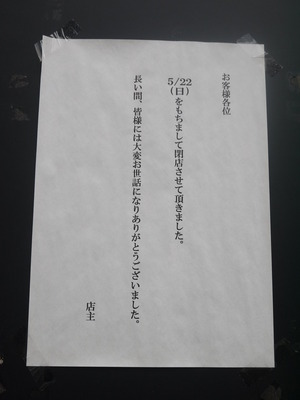 お客様各位
5/22
(日)をもちまして閉店させて頂きました。
長い間、皆様には大変お世話になりありがとうございました。
店主